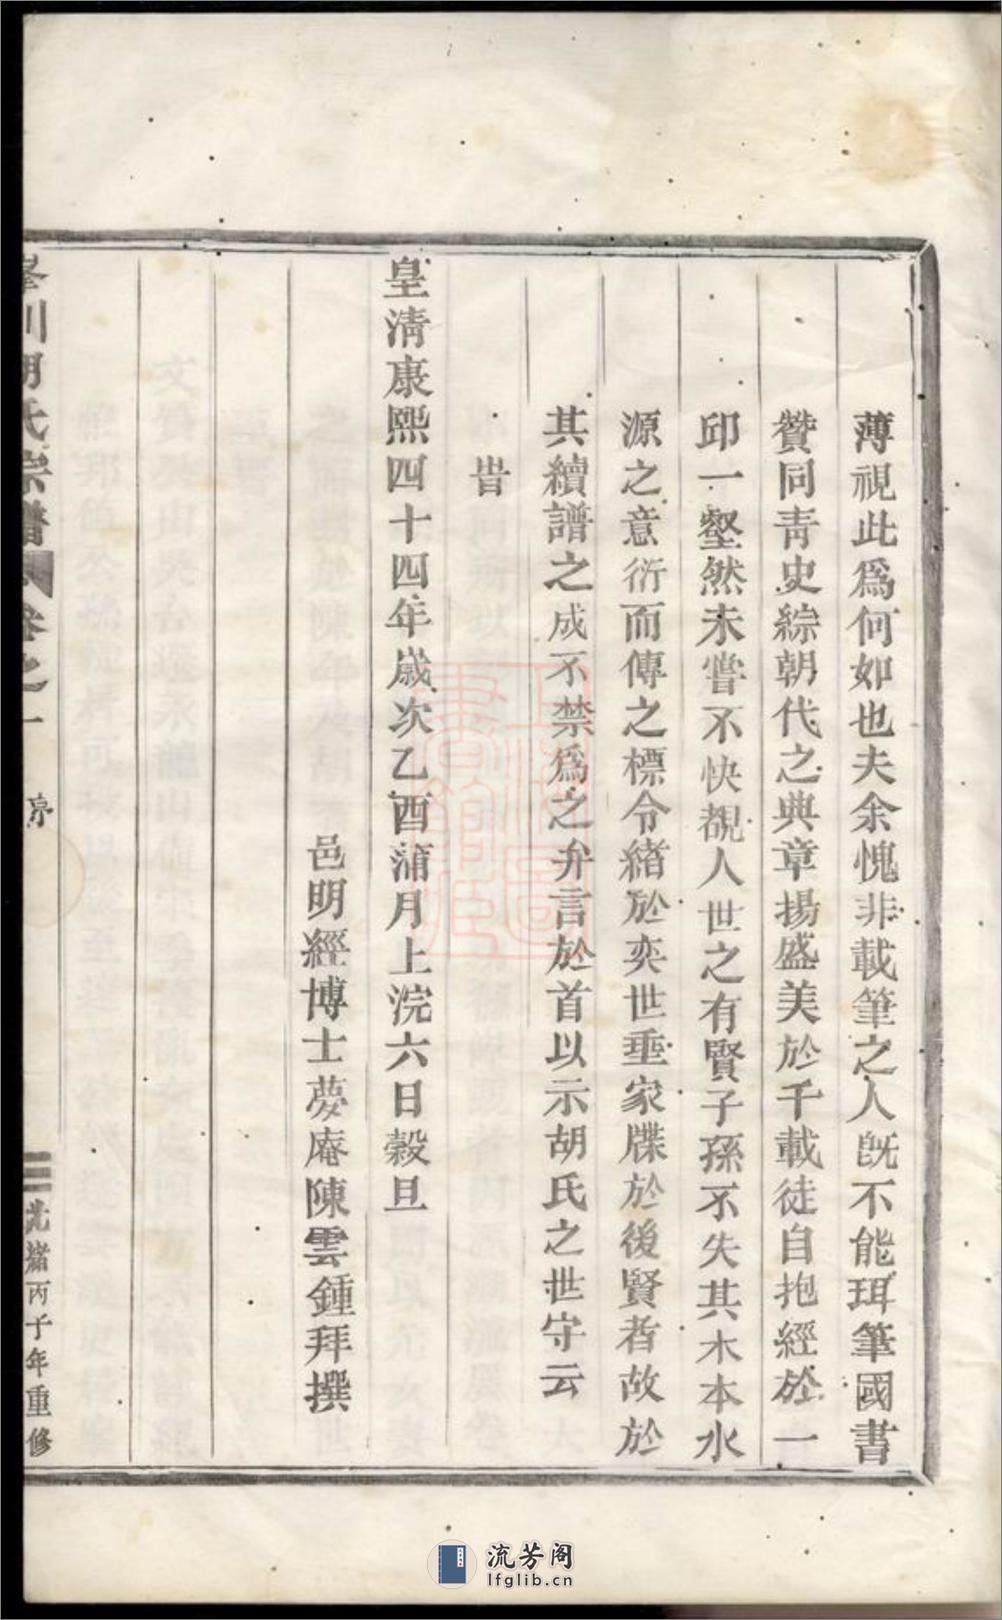 薄視此爲何如也夫余愧非載筆之人既不能珥筆國書
贊同青史綜朝代之典章揚盛美於千載徒自抱經於一
邱一壑然未嘗不快覩人世之有賢子孫不失其木本水
源之意衍而傳之標令緒於奕世垂家牒於後賢者故於
其續譜之成不禁爲之弁言於首以示胡氏之世守云
旹
皇清康熙四十四年歲次乙酉蒲月上浣六日穀旦
邑明經博士夢庵陳雲鍾拜撰
川胡氏宗譜 卷之一 序 光緒丙子年重修
流芳阁
lfglib.cn